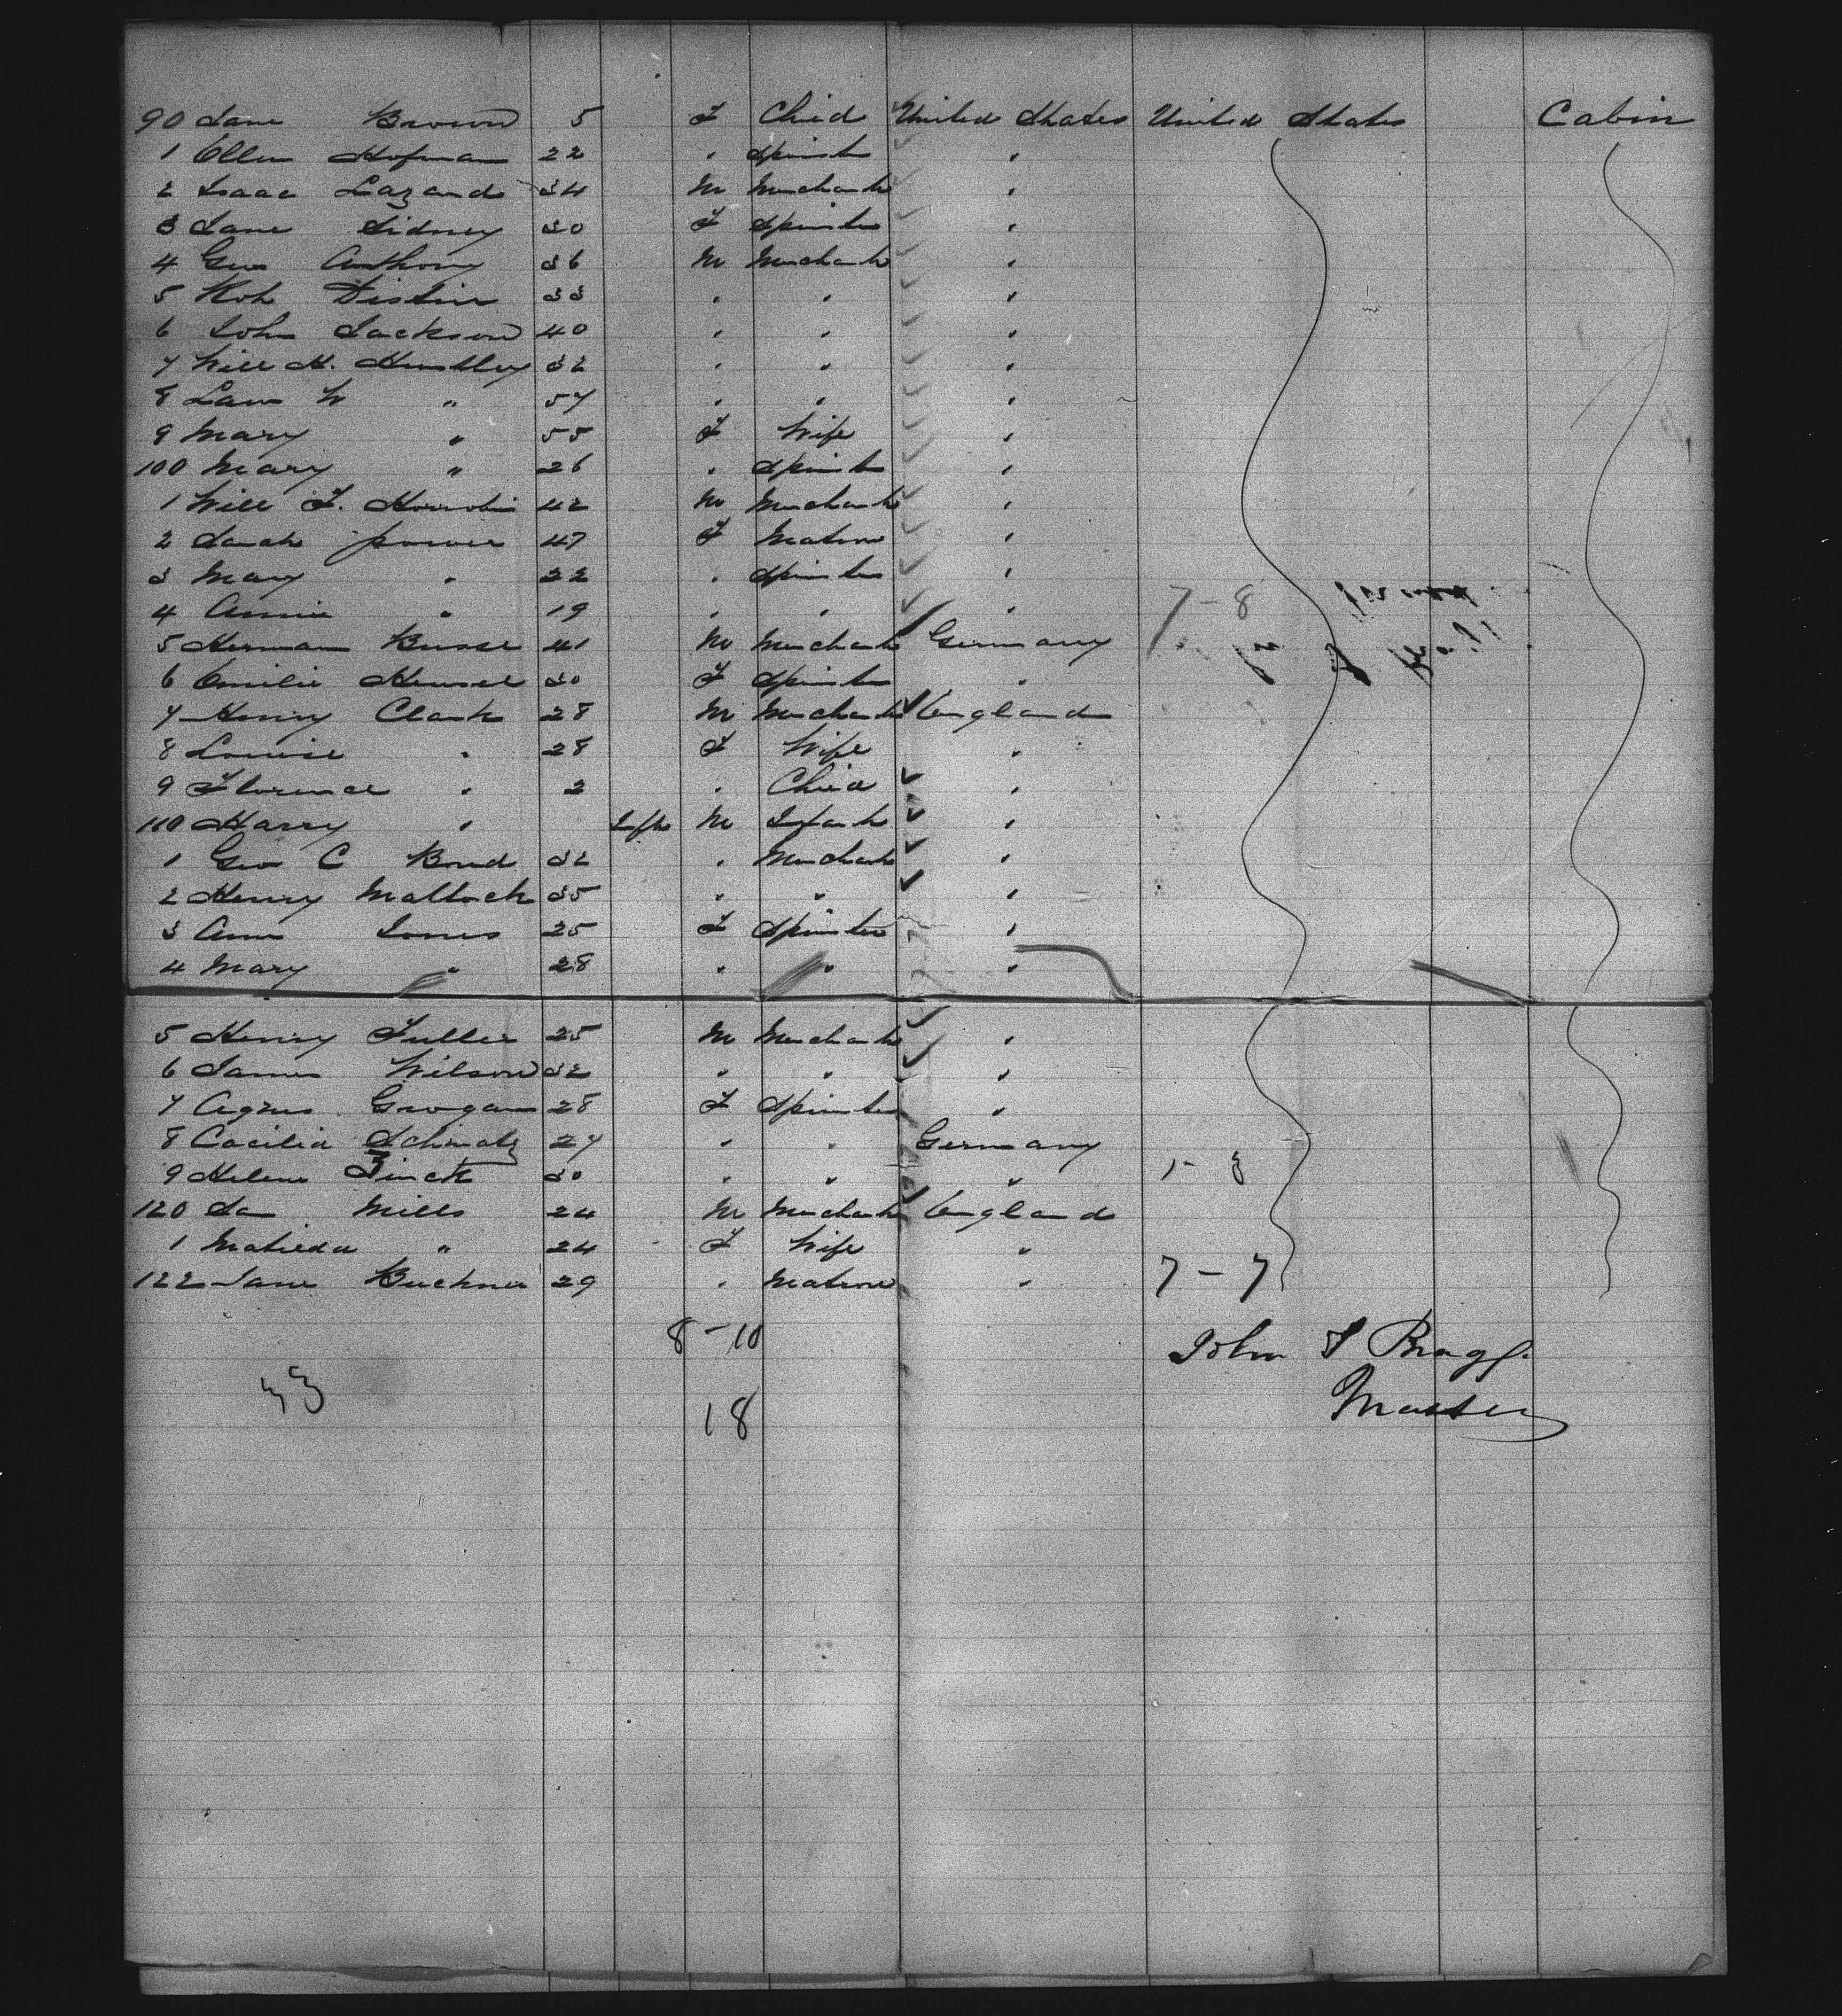 90 Jane Brown 5 F Child United States United States Cabin
1 Ellen Hofman 22 " Spinster "
2 Isaac Lazard 34 M Merchant "
3 Jane Sidney 30 F Spinster "
4 Geo Anthony 36 M Merchant "
5 Distin 33 " " "
6 John Jackson 40 " " "
7 Will H. 32 " " "
8 W " 57 " " "
9 Mary " 55 F Wife "
100 Mary " 26 " Spinster "
1 Will F. 42 M Merchant "
2 Sarah power 47 F Matron "
3 Mary " 22 " Spinster "
4 Annie " 19 " " " 7-8
5 Herman Busse 41 M Merchant Germany
6 Emilie Hensel 30 F Spinster "
7 Henry Clark 28 M Merchant England
8 Louise " 28 F Wife "
9 Florence " 2 " Child "
110 Harry " Inft M Infant "
1 Geo C Bond 32 " Merchant "
2 Henry Mallock 35 " " "
3 Ann Jones 25 F Spinster "
4 Mary " 28 " " "
5 Henry Fuller 25 M Merchant "
6 James Wilson 32 " " "
7 Agnes Grogan 28 F Spinster "
8 Cacilia Schmalz 27 " " Germany
9 Helene Zinck 30 " " "
120 Ja Mills 24 M Merchant England
1 Matilda " 24 F Wife "
122 Jane Buchner 29 " Matron " 7-7
8-10 John S Bragg.
33 Master
18